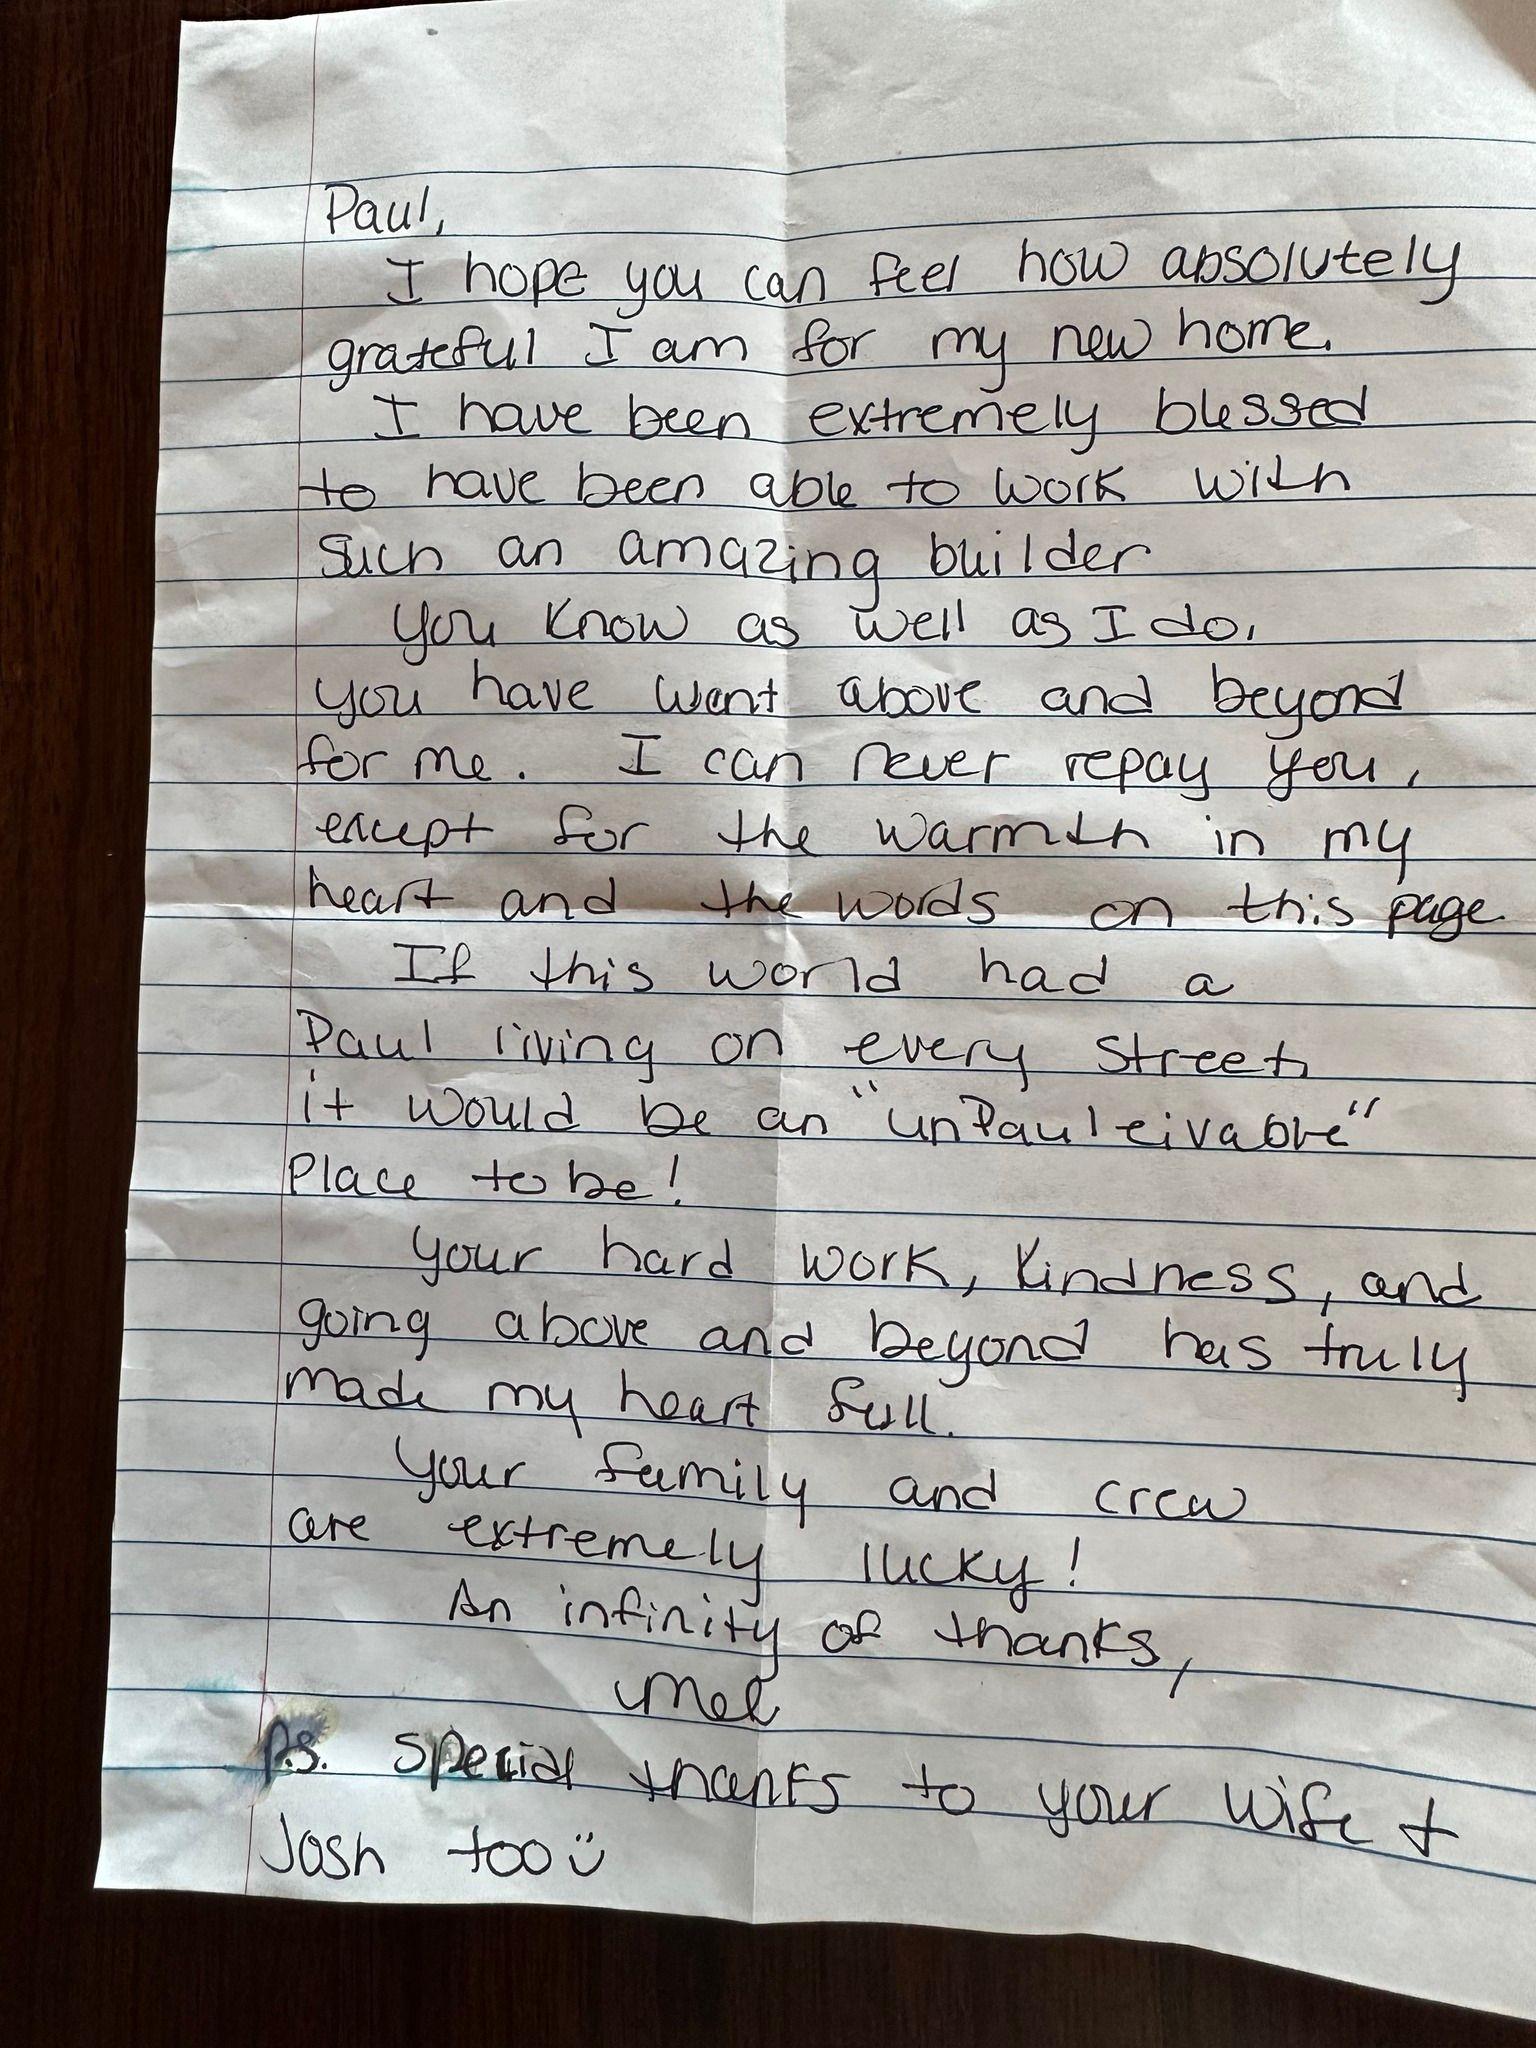 Paul,
I hope you can feel how absolutely
grateful I am for my new home.
I have been extremely blessed
to have been able to work with
such an amazing builder
You know as well as I do,
you have went above and beyond
for me. I can never repay you,
except for the warmth in my
heart and the words on this page
If this world had a
Paul living on every street,
it would be an "unPauleivable"
Place to be!
Your hard work, kindness, and
going above and beyond has truly
made my heart full.
Your family and crew
are extremely lucky!
An infinity of thanks,
Mel
P.S. special thanks to your wife +
Josh too ü